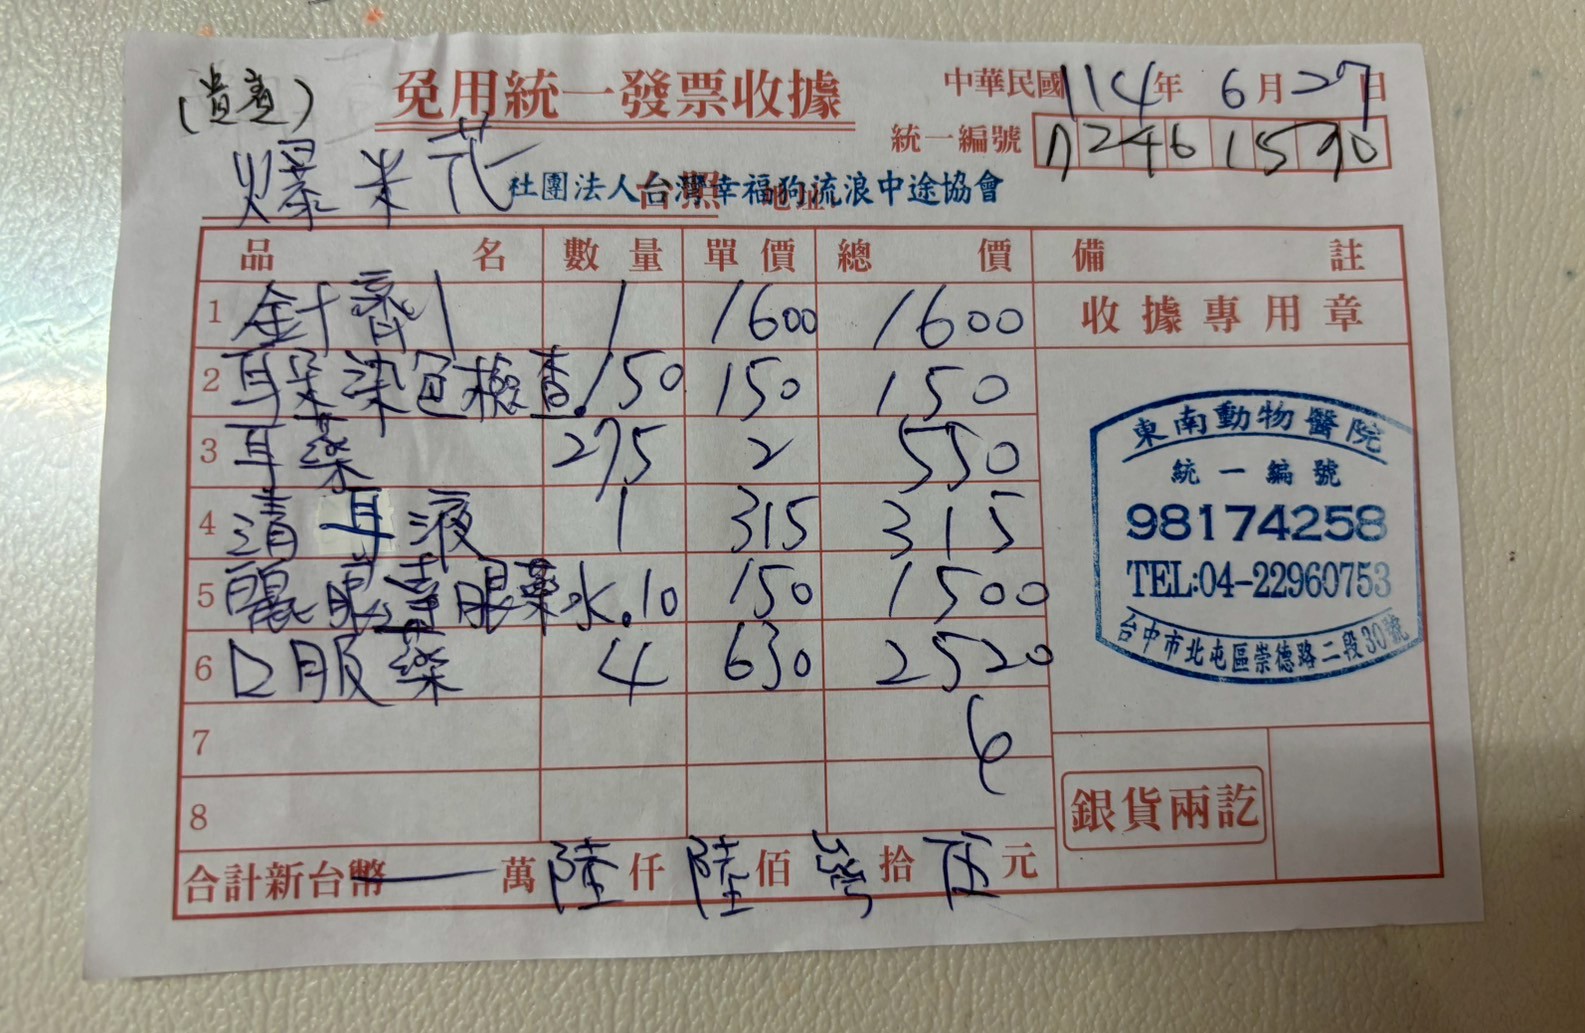 (貴賓)
免用統一發票收據
中華民國114年 6月27日
統一編號
爆米花 社團法人台灣幸福狗流浪中途協會
品 名 數 量 單 價 總 價 備 註
1 針劑 1 1600 1600
收據專用章
2 耳朵染色檢查. 150 150 150
3 耳藥 275 2 550
4 清耳液 1 315 315
5 眼藥水. 10 150 1500
6 口服藥 4 630 2520
7
8
東南動物醫院
統一編號
98174258
TEL:04-22960753
台中市北屯區崇德路二段30號
銀貨兩訖
合計新台幣 萬陸仟陸佰參拾伍元